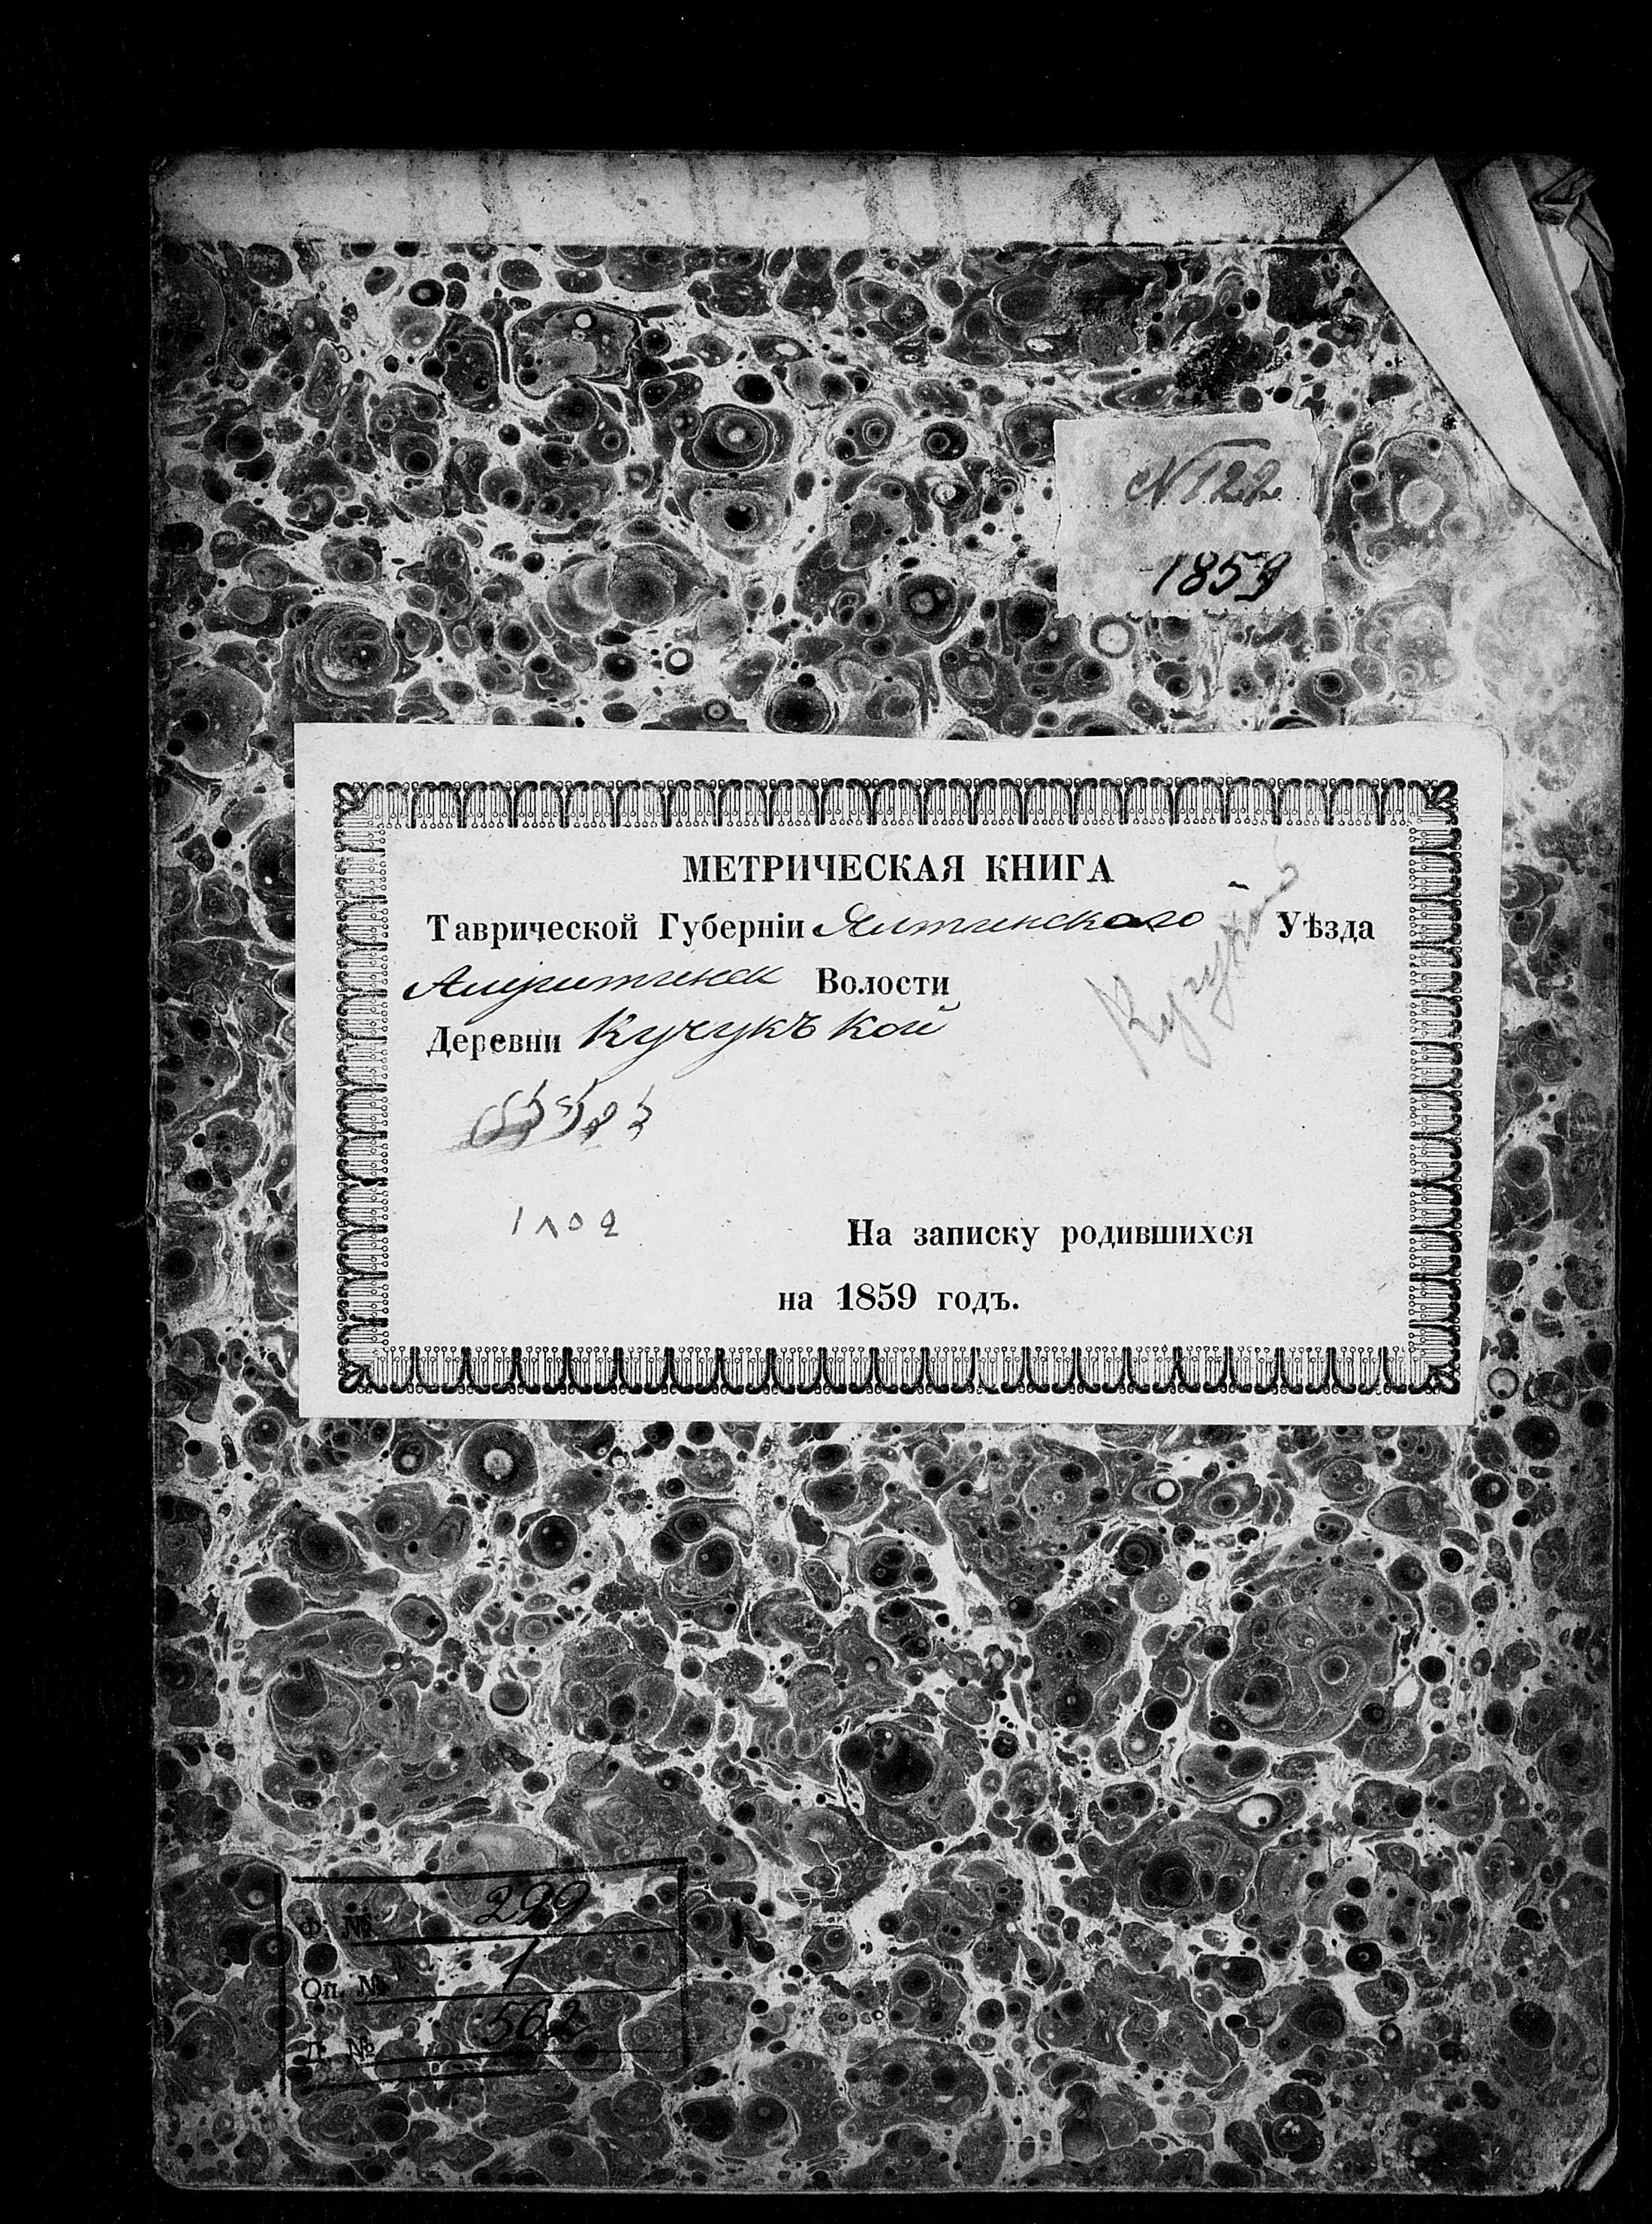 № 122
1859
МЕТРИЧЕСКАЯ КНИГА
Таврической Губерніи Ялтинскаго Уѣзда
Волости
Деревни Кучукъ Кой
١٨٥٩
На записку родившихся
на 1859 годъ.
Ф. № 299
Оп. № 1
Д. № 562